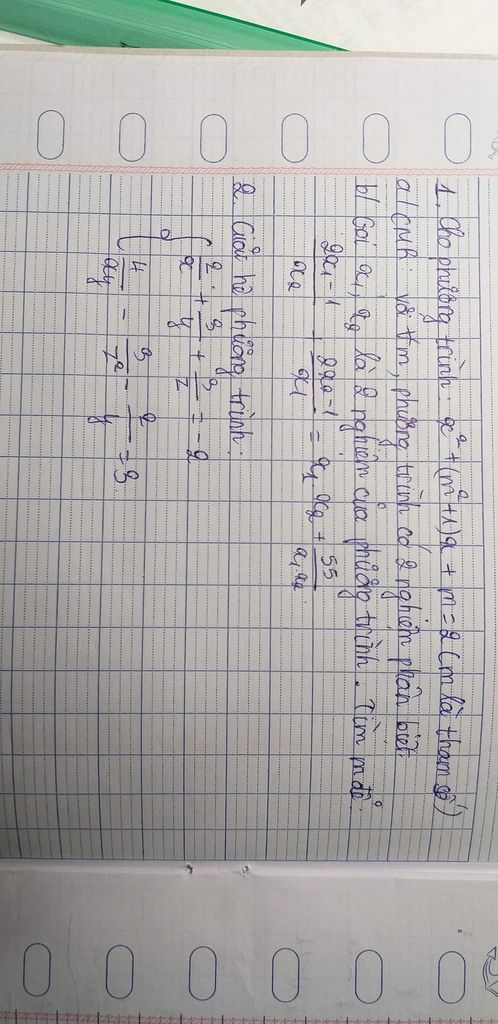 1. Cho phương trình: x² + (m²+1)x + m = 2 (m là tham số)
a/ CMR: với ∀m, phương trình có 2 nghiệm phân biệt
b/ Gọi x₁, x₂ là 2 nghiệm của phương trình. Tìm m để:
(2x₁ - 1)/x₂ + (2x₂ - 1)/x₁ = x₁ x₂ + 55/(x₁.x₂)
2. Giải hệ phương trình:
{ 2/x + 3/y + 3/z = -2
4/(xy) - 3/z² - 2/y = 3